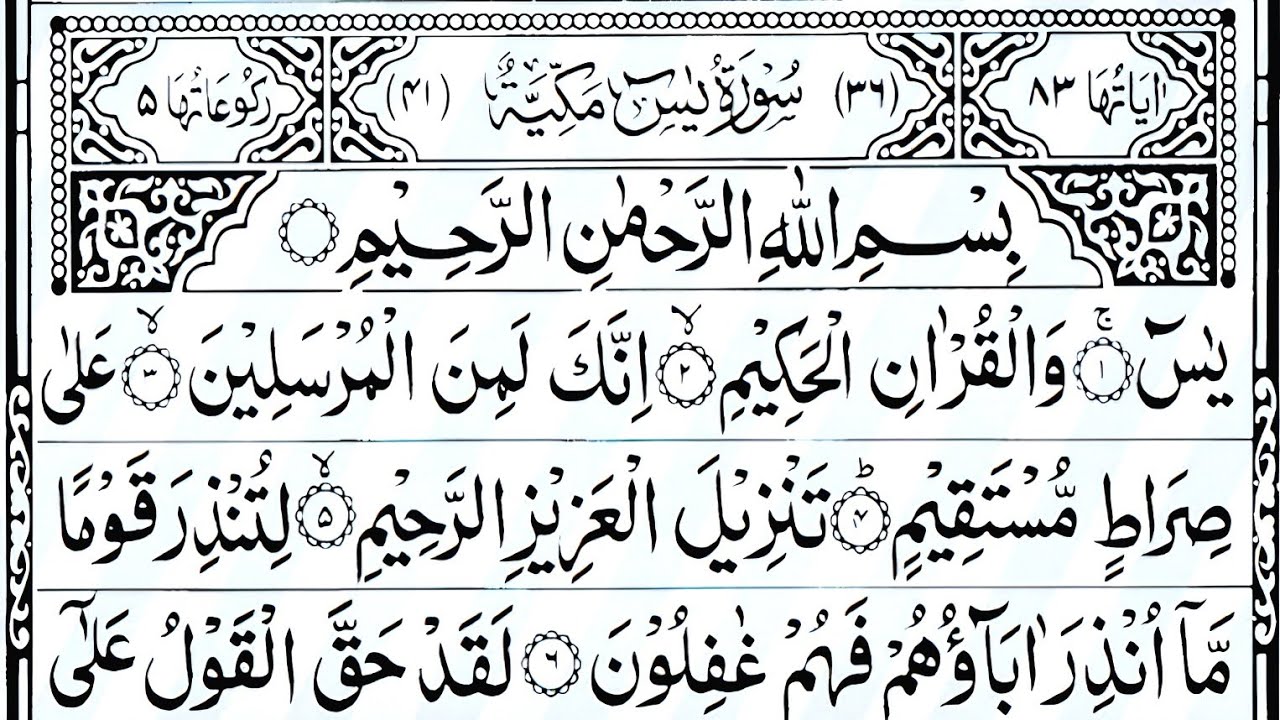 اٰيَاتُهَا ٨٣ (٣٦) سُوْرَةُ يٰسٓ مَكِّيَّةٌ (٤١) رُكُوْعَاتُهَا ٥
بِسْمِ اللّٰهِ الرَّحْمٰنِ الرَّحِيْمِ
يٰسٓ ۚ ١ وَالْقُرْاٰنِ الْحَكِيْمِ ۙ ٢ اِنَّكَ لَمِنَ الْمُرْسَلِيْنَ ۙ ٣ عَلٰى
صِرَاطٍ مُّسْتَقِيْمٍ ؕ ۴ تَنْزِيْلَ الْعَزِيْزِ الرَّحِيْمِ ۙ ۵ لِتُنْذِرَ قَوْمًا
مَّاۤ اُنْذِرَ اٰبَآؤُهُمْ فَهُمْ غٰفِلُوْنَ ٦ لَقَدْ حَقَّ الْقَوْلُ عَلٰۤى